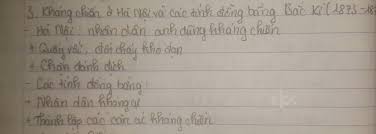 3. Kháng chiến ở Hà Nội và các tỉnh đồng bằng Bắc Kì (1873-18
- Hà Nội: nhân dân anh dũng kháng chiến
+ Quấy rối, đốt cháy kho đạn
+ Chặn đánh địch
- Các tỉnh đồng bằng:
+ Nhân dân kháng cự
+ Thành lập các cơ kháng chiến